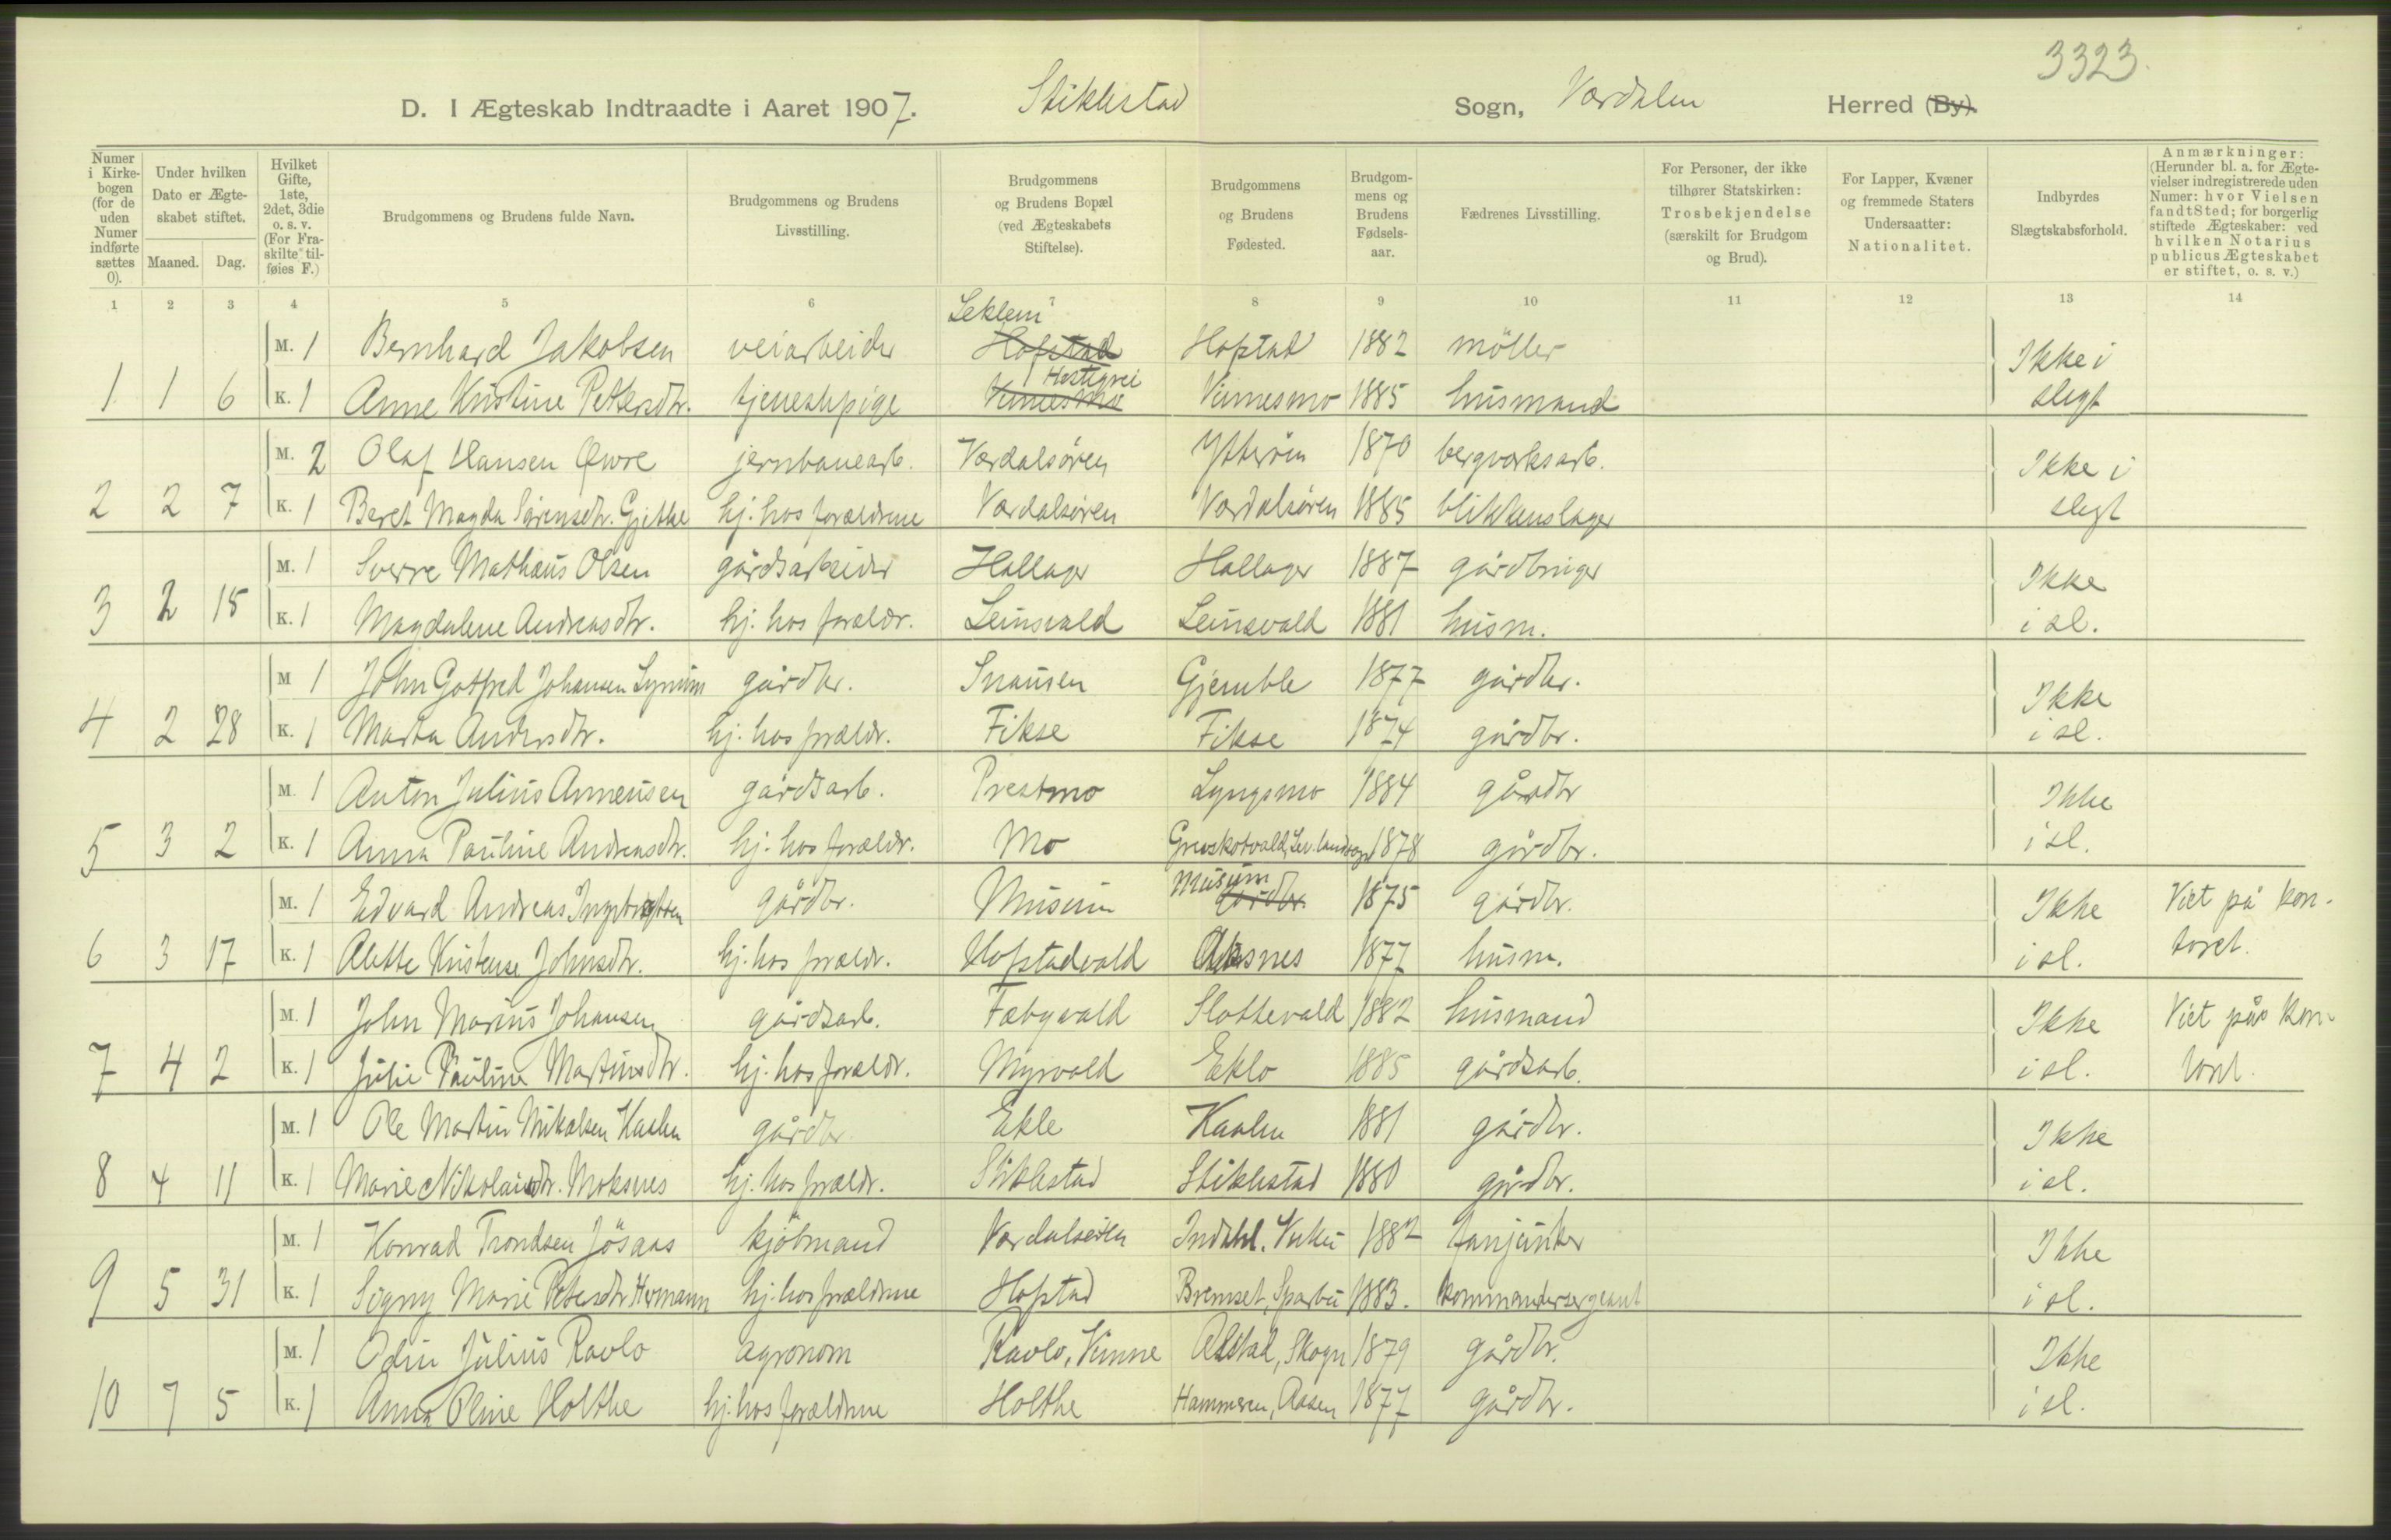 3323.
D. I Ægteskab Indtraadte i Aaret 1907. Stiklestad Sogn, Værdalen Herred (By).
Numer i Kirkebogen (for de uden Numer indførte sættes 0).
Under hvilken Dato er Ægteskabet stiftet.
Maaned. Dag.
Hvilket Gifte, 1ste, 2det, 3die o. s. v. (For Fraskilte tilføies F.)
Brudgommens og Brudens fulde Navn.
Brudgommens og Brudens Livsstilling.
Brudgommens og Brudens Bopæl (ved Ægteskabets Stiftelse).
Brudgommens og Brudens Fødested.
Brudgommens og Brudens Fødselsaar.
Fædrenes Livsstilling.
For Personer, der ikke tilhører Statskirken: Trosbekjendelse (særskilt for Brudgom og Brud).
For Lapper, Kvæner og fremmede Staters Undersaatter: Nationalitet.
Indbyrdes Slægtskabsforhold.
Anmærkninger: (Herunder bl. a. for Ægtevielser indregistrerede uden Numer: hvor Vielsen fandt Sted; for borgerlig stiftede Ægteskaber: ved hvilken Notarius publicus Ægteskabet er stiftet, o. s. v.)
1 2 3 4 5 6 7 8 9 10 11 12 13 14
Leklem
M. 1 Bernhard Jakobsen veiarbeider Hofstad Hofstad 1882 møller Ikke i
1 1 6 K. 1 Anne Kristine Petersdtr. tjenestepige Vinnesmo Vinnesmo 1885 husmand slegt
M. 2 Olaf Hansen Øwre jernbanearb. Værdalsøren Ytterøen 1870 bergværksarb. Ikke i
2 2 7 K. 1 Beret Magda Sørensdtr. hj. hos forældrene Værdalsøren Værdalsøren 1885 blikkenslager slegt
M. 1 Sverre Mathæus Olsen gårdsarbeider Hallager Hallager 1887 gårdbruger Ikke
3 2 15 K. 1 Magdalene Andreasdtr. hj. hos forældr. Leinsvald Leinsvald 1881 husm. i sl.
M 1 John Gotfred Johansen Lynum gårdbr. Snausen Gjemble 1877 gårdbr. Ikke
4 2 28 K. 1 Marta Andersdtr. hj. hos forældr. Fikse Fikse 1874 gårdbr. i sl.
M. 1 Anton Julius Arneusen gårdsarb. Prestmo Lyngsmo 1884 gårdbr Ikke
5 3 2 K. 1 Anna Pauline Andreasdtr. hj. hos forældr. Mo 1878 gårdbr. i sl.
Musum
M. 1 Edvard Andreas gårdbr. Musum gårdbr. 1875 gårdbr. Ikke Viet på kon-
6 3 17 K. 1 Alette Kristense Johnsdtr. hj. hos forældr. Hofstadvald 1877 husm. i sl. toret.
M. 1 John Marius Johansen gårdsarb. Fæbyvald Slottevald 1882 husmand Ikke Viet på kon-
7 4 2 K. 1 Julie Pauline Martinsdtr. hj. hos forældr. Myrvald Eklo 1885 gårdsarb. i sl. toret.
M. 1 Ole Martin Mikalsen Kaalen gårdbr. Ekle Kaalen 1881 gårdbr. Ikke
8 4 11 K. 1 Marie Nikolaisdtr. Moksnes hj. hos forældr. Stiklestad Stiklestad 1880 gårdbr. i sl.
M. 1 Konrad Trondsen Jøsaas kjøbmand Værdalsøren Indahl. Vuku 1882 fanjunker Ikke
9 5 31 K. 1 Signy Marie Petersdtr. Hermann hj. hos forældrene Hofstad Bremset, Sparbu 1883. kommandersergeant i sl.
M. 1 Odin Julius Ravlo agronom Ravlo, Vinne Alstad, Skogn 1879 gårdbr. Ikke
10 7 5 K. 1 Anna Oline Holthe hj. hos forældrene Holthe Hammeren, Aasen 1877 gårdbr. i sl.